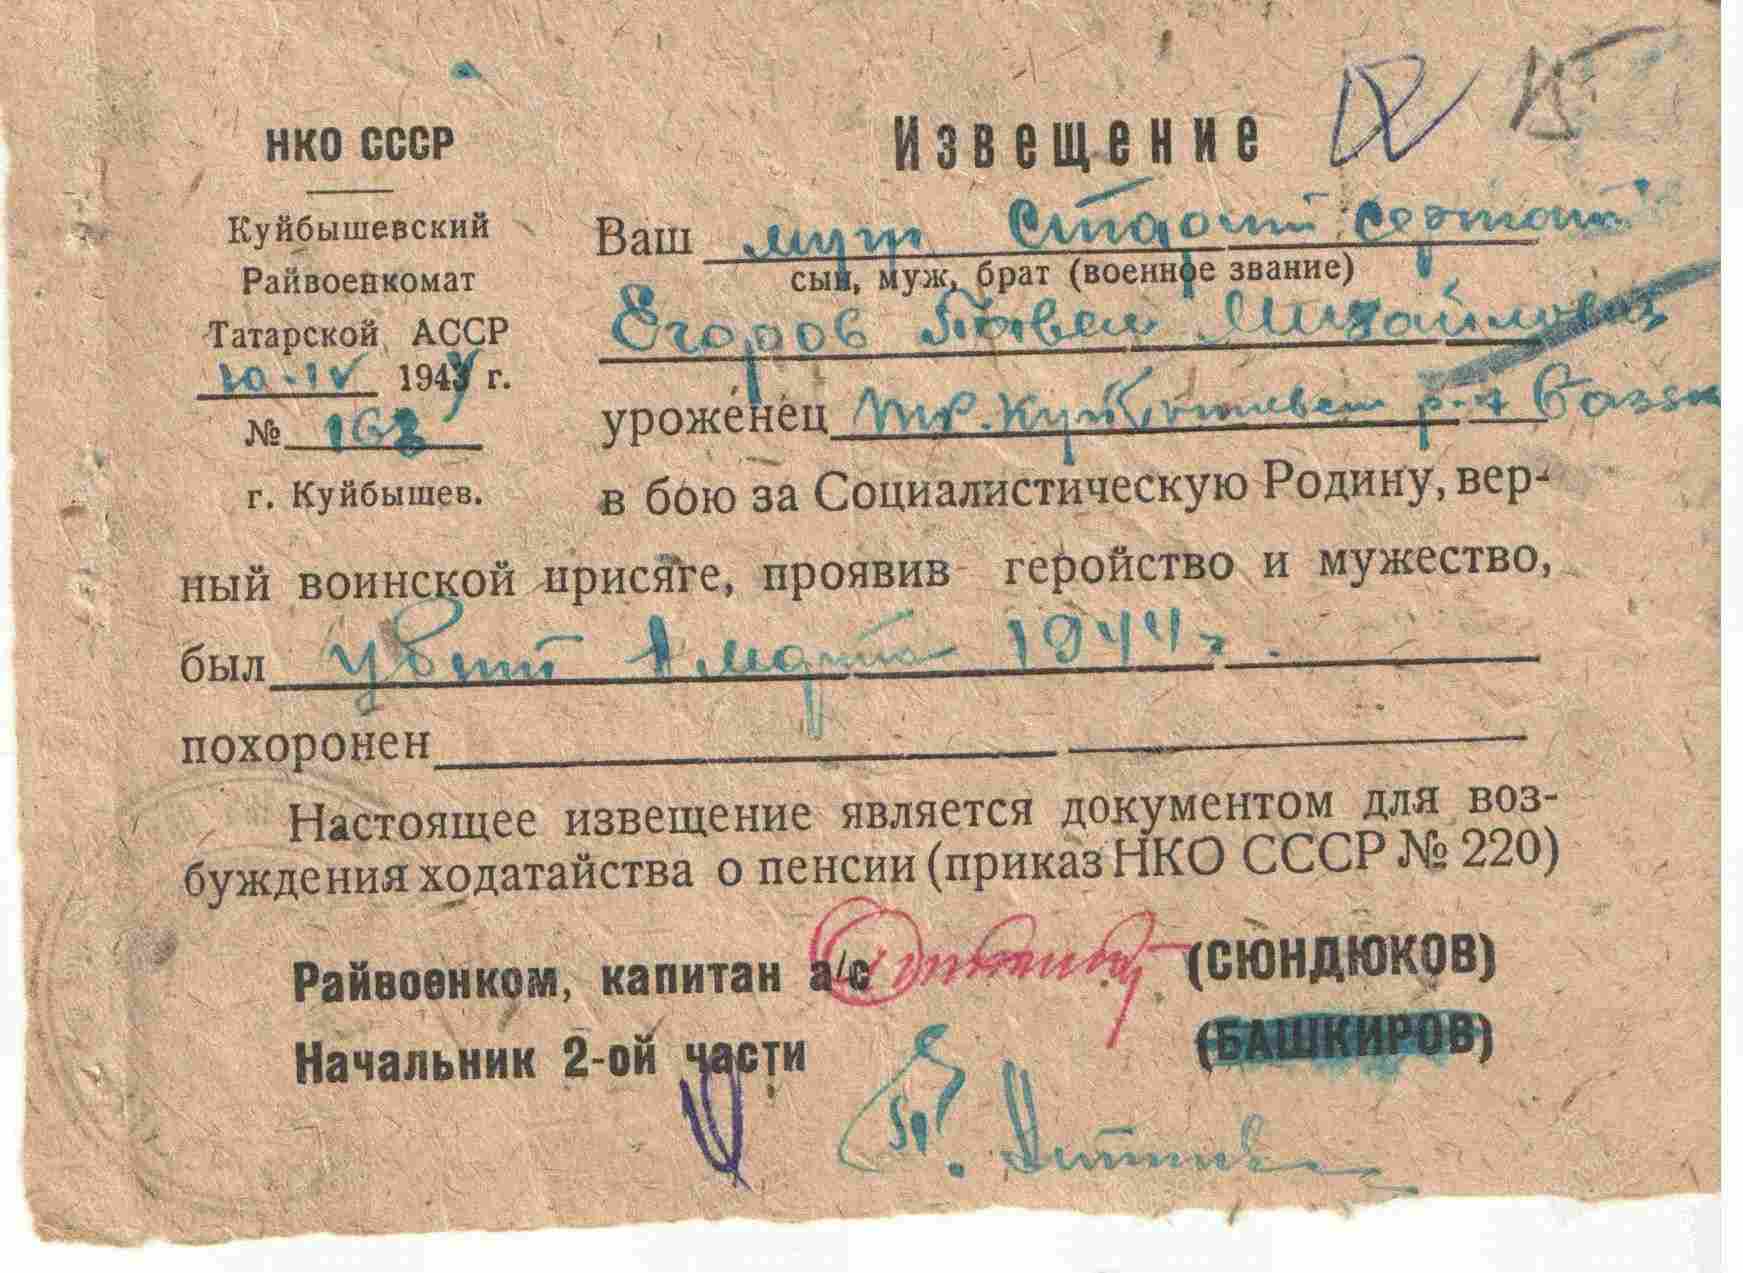 НКО СССР
Куйбышевский
Райвоенкомат
Татарской АССР
10-IV 1944 г.
№ 163
г. Куйбышев.
Извещение
Ваш муж Старший сержант
сын, муж, брат (военное звание)
Егоров Павел Михайлович
уроженец р-н
в бою за Социалистическую Родину, вер-
ный воинской присяге, проявив геройство и мужество,
был убит 1 марта 1944 г.
похоронен
Настоящее извещение является документом для воз-
буждения ходатайства о пенсии (приказ НКО СССР № 220)
Райвоенком, капитан а/с (СЮНДЮКОВ)
Начальник 2-ой части (БАШКИРОВ)